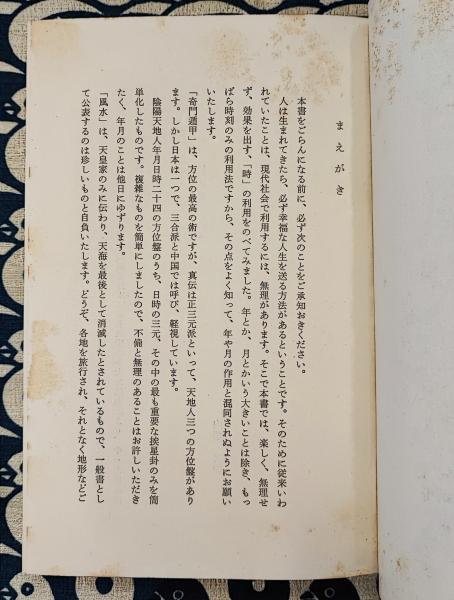 まえがき
本書をごらんになる前に、必ず次のことをご承知おきください。
人は生まれてきたら、必ず幸福な人生を送る方法があるということです。そのために従来いわ
れていたことは、現代社会で利用するには、無理があります。そこで本書では、楽しく、無理せ
ず、効果を出す、「時」の利用をのべてみました。年とか、月とかいう大きいことは除き、もっ
ぱら時刻のみの利用法ですから、その点をよく知って、年や月の作用と混同されぬようにお願い
いたします。
「奇門遁甲」は、方位の最高の術ですが、真伝は正三元派といって、天地人三つの方位盤があり
ます。しかし日本は一つで、三合派と中国では呼び、軽視しています。
陰陽天地人年月日時二十四の方位盤のうち、日時の三元、その中の最も重要な挨星卦のみを簡
単化したものです。複雑なものを簡単にしましたので、不備と無理のあることはお許しいただき
たく、年月のことは他日にゆずります。
「風水」は、天皇家のみに伝わり、天海を最後として消滅したとされているもので、一般書とし
て公表するのは珍しいものと自負いたします。どうぞ、各地を旅行され、それとなく地形などご